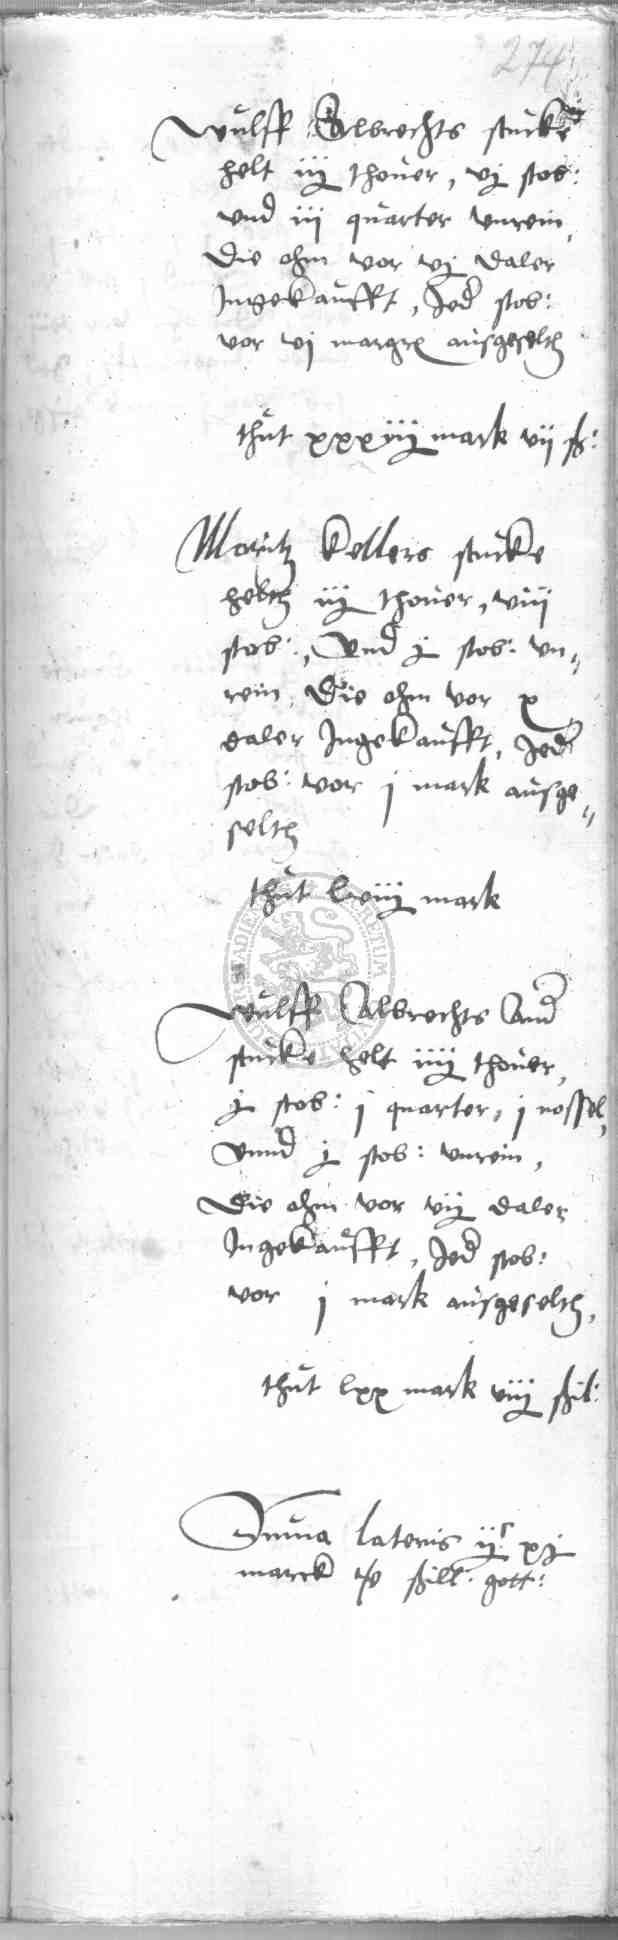 274
Wulff Albrechts stucke
helt iiij thover, vj stob:
vnd iij quarter vnrein,
Die ohm vor vj daler
Ingekaufft, Jed stob:
vor vj margr ausgeselth
thut xxxiiij mark vij ß:
Moritz Kellers stucke
helth iiij thover, viij
stob:, Vnd j stob: vn„
rein, Die ohm vor x
daler Ingekaufft, Jed
stob: vor j mark ausge„
selth
thut mark
Wulff Albrechts And
stucke helt iiij thover,
j stob: j quarter, j nossel,
Vnnd j stob: vnrein,
Die ohm vor vij daler
Ingekaufft, Jed stob:
vor j mark ausgeselth,
thut lxx mark viij ßil:
Suma lateris
marck ßill. gott: